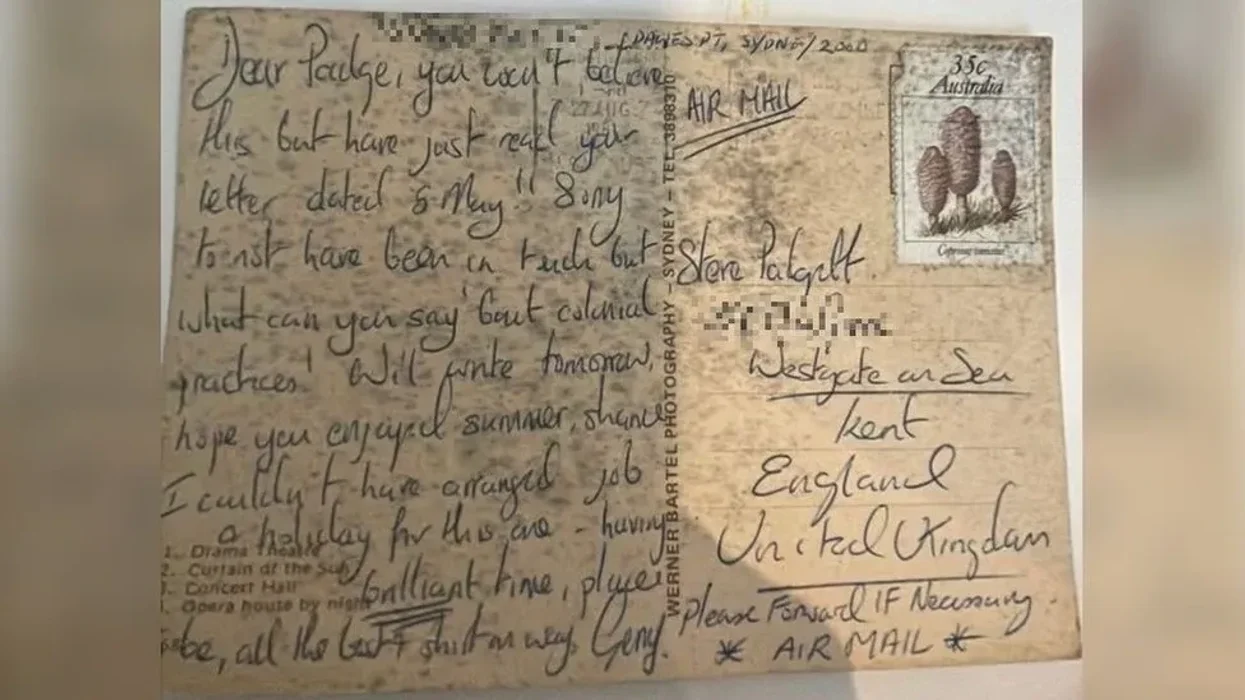 DAWES PT, SYDNEY 2000
Dear Padge, you won't believe
this but have just read your
letter dated 5 May!! Sorry
to not have been in touch but
what can you say 'bout colonial
practices! Will write tomorrow,
hope you enjoyed summer, shame
I couldn't have arranged job
a holiday for this one - having
brilliant time, place
be, all the best + shirt on way. Gerry.
1. Drama Theatre
2. Curtain of the Sun
3. Concert Hall
4. Opera house by night
WERNER BARTEL PHOTOGRAPHY – SYDNEY – TEL. 3898310
AIR MAIL
35c
Australia
Steve Padgett
Westgate on Sea
Kent
England
United Kingdom
Please Forward IF Necessary.
* AIR MAIL *